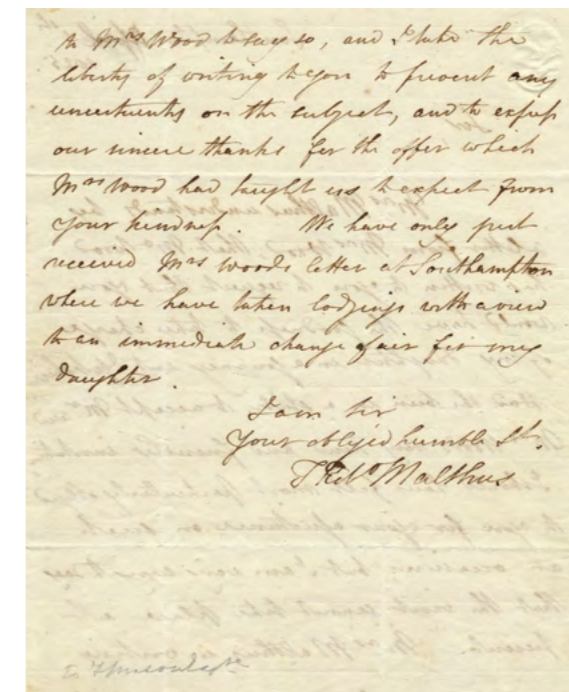 to Mrs Wood to say so, and I take the
liberty of writing to you to prevent any
uncertainty on the subject, and to express
our sincere thanks for the offer which
Mrs Wood had taught us to expect from
your kindness. We have only just
received Mrs Woods letter at Southampton
where we have taken lodgings with a view
to an immediate change of air for my
daughter.
I am Sir
Your obliged humble St.
T Robt Malthus
to